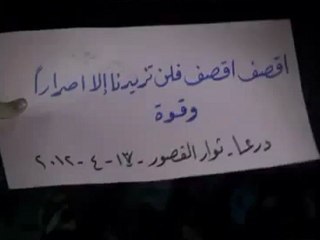 اقصف اقصف فلن تزيدنا إلا اصراراً
وقوة
درعا - ثوار القصور - ١٣ - ٤ - ٢٠١٢